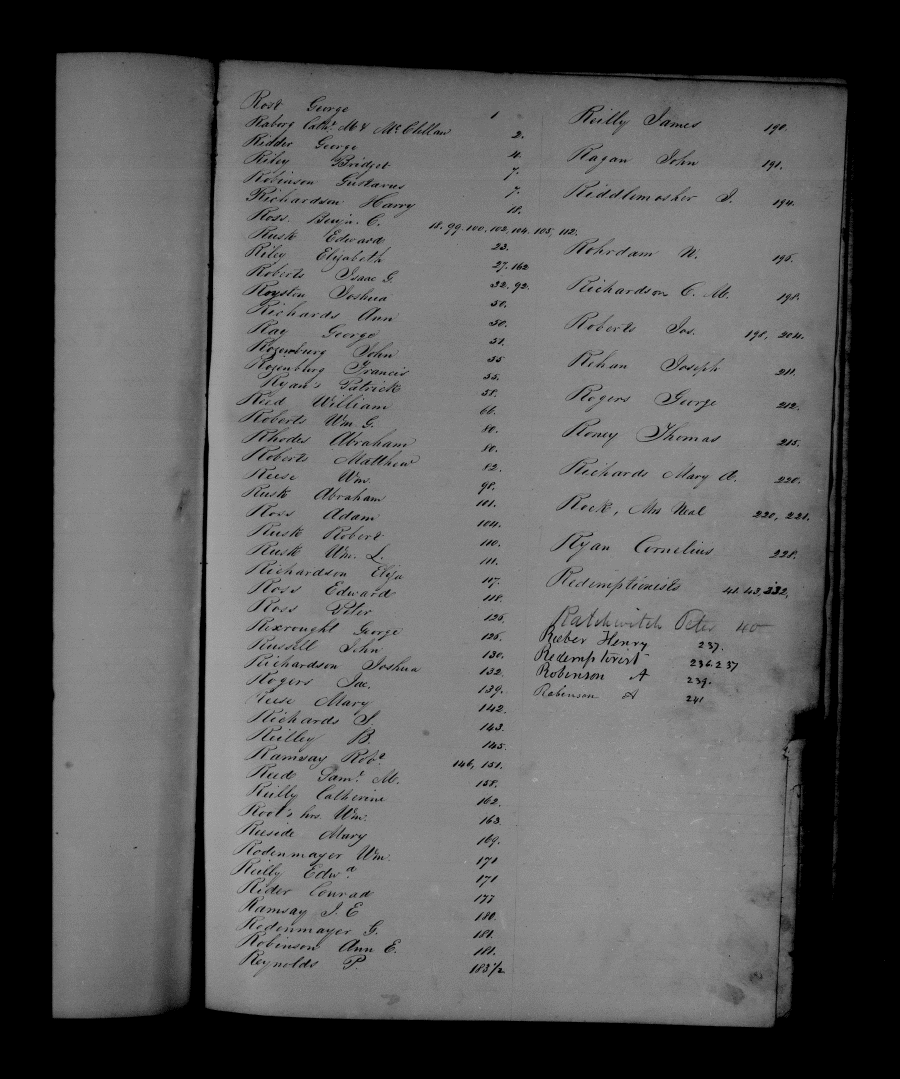 Rost George 1
Raborg Cathe. M & McClellan 2.
Ridder George 4.
Riley Bridget 7.
Robinson Gustavus 7.
Richardson Harry 18.
Ross Benjn. C. 18. 99. 100. 102. 104. 105, 112.
Rusk Edward 23.
Riley Elizabeth 27. 162
Roberts Isaac G. 32. 92.
Royston Joshua 50.
Richards Ann 50.
Ray George 51.
Rozenburg John 55
Rozenburg Francis 55.
Ryan's Patrick 58.
Reed William 66.
Roberts Wm G. 80.
Rhodes Abraham 80.
Roberts Matthew 82.
Reese Wm. 98.
Rusk Abraham 101.
Ross Adam 104.
Rusk Robert 110.
Rusk Wm. L. 111.
Richardson Eliza 117.
Ross Edward 118.
Ross Peter 125.
Rexrought George 125.
Russell John 130.
Richardson Joshua 132.
Rogers Jac. 139.
Reese Mary 142.
Richards J 143.
Reilley B. 145.
Ramsay Robt. 146, 151.
Reed Saml. M. 158.
Reilly Catherine 162.
Root's hrs. Wm. 163.
Rieside Mary 169.
Rodenmayer Wm. 171
Reilly Edwd 171
Rider Conrad 177
Ramsay J. E 180.
Rodenmayer G. 181.
Robinson Ann E. 181.
Reynolds P. 183½
Reilly James 190.
Ragan John 191.
Riddlemosher J. 194.
Rohrdam N. 195.
Richardson C. M. 198.
Roberts Jos. 198, 204.
Rihan Joseph 211.
Rogers George 212.
Roney Thomas 215.
Richards Mary A. 220.
Rock, Mrs Neal 220, 221.
Ryan Cornelius 228.
Redemptionists 41. 43, 232,
Ratchwitch Peter 40
Rieber Henry 237.
Redemptorist 236.237
Robinson A 239.
Robinson A 241